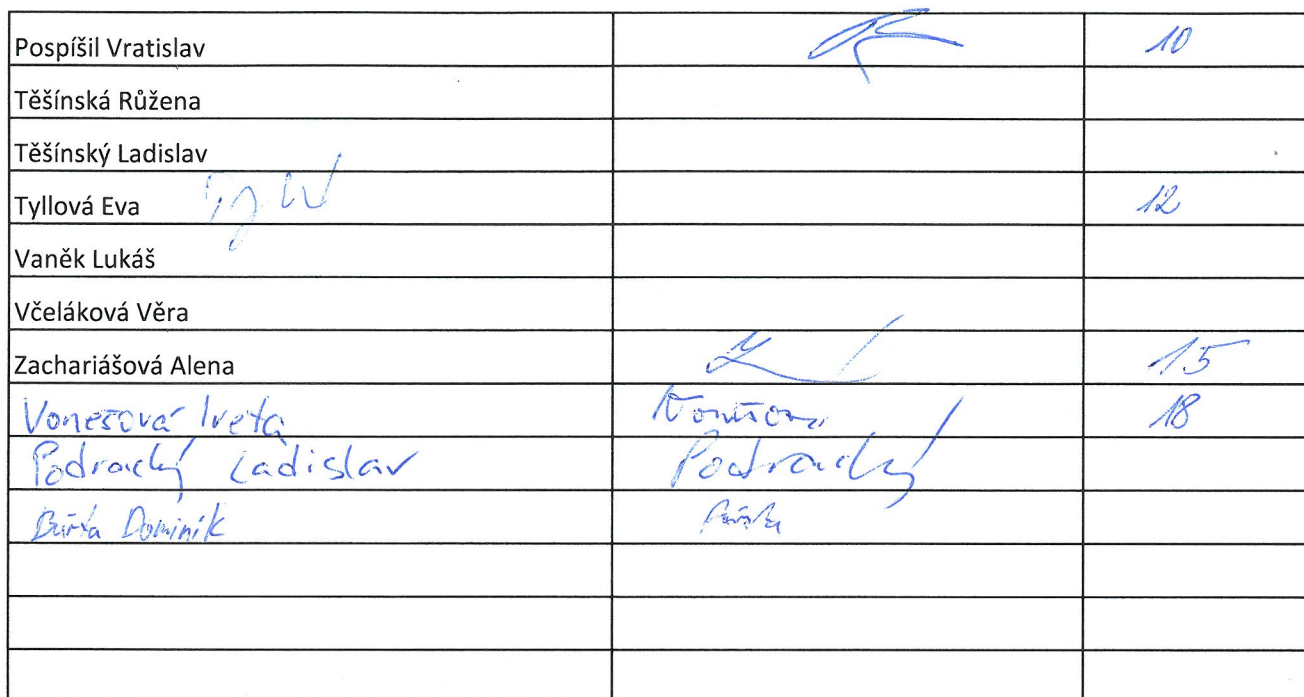 Pospíšil Vratislav 10
Těšínská Růžena
Těšínský Ladislav
Tyllová Eva 12
Vaněk Lukáš
Včeláková Věra
Zachariášová Alena 15
Vonešová Iveta 18
Podracký Ladislav Podracký
Dominik